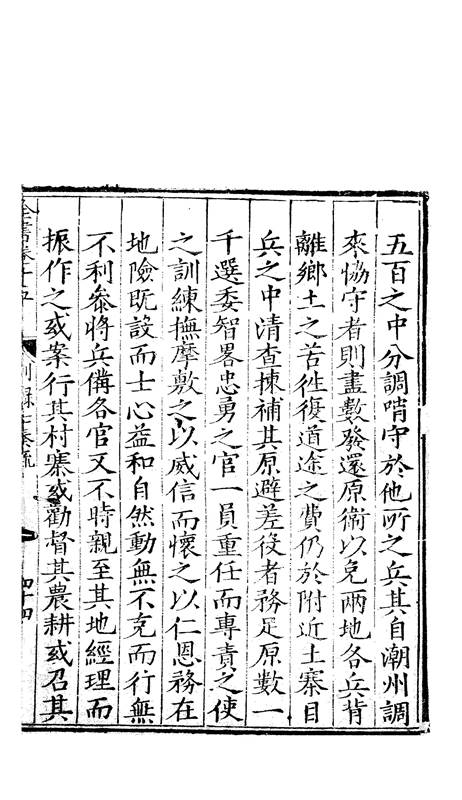 五百之中分調哨守於他所之兵其自潮州調
來恊守者則盡數發還原衛以免兩地各兵背
離鄉土之苦徃復道途之費仍於附近土寨目
兵之中清查揀補其原避差役者務足原數一
千選委智畧忠勇之官一員重任而專責之使
之訓練撫摩敷之以威信而懷之以仁恩務在
地險既設而士心益和自然動無不克而行無
不利叅將兵備各官又不時親至其地經理而
振作之或案行其村寨或勸督其農耕或召其
全書卷十五
別録七奏疏
四十四